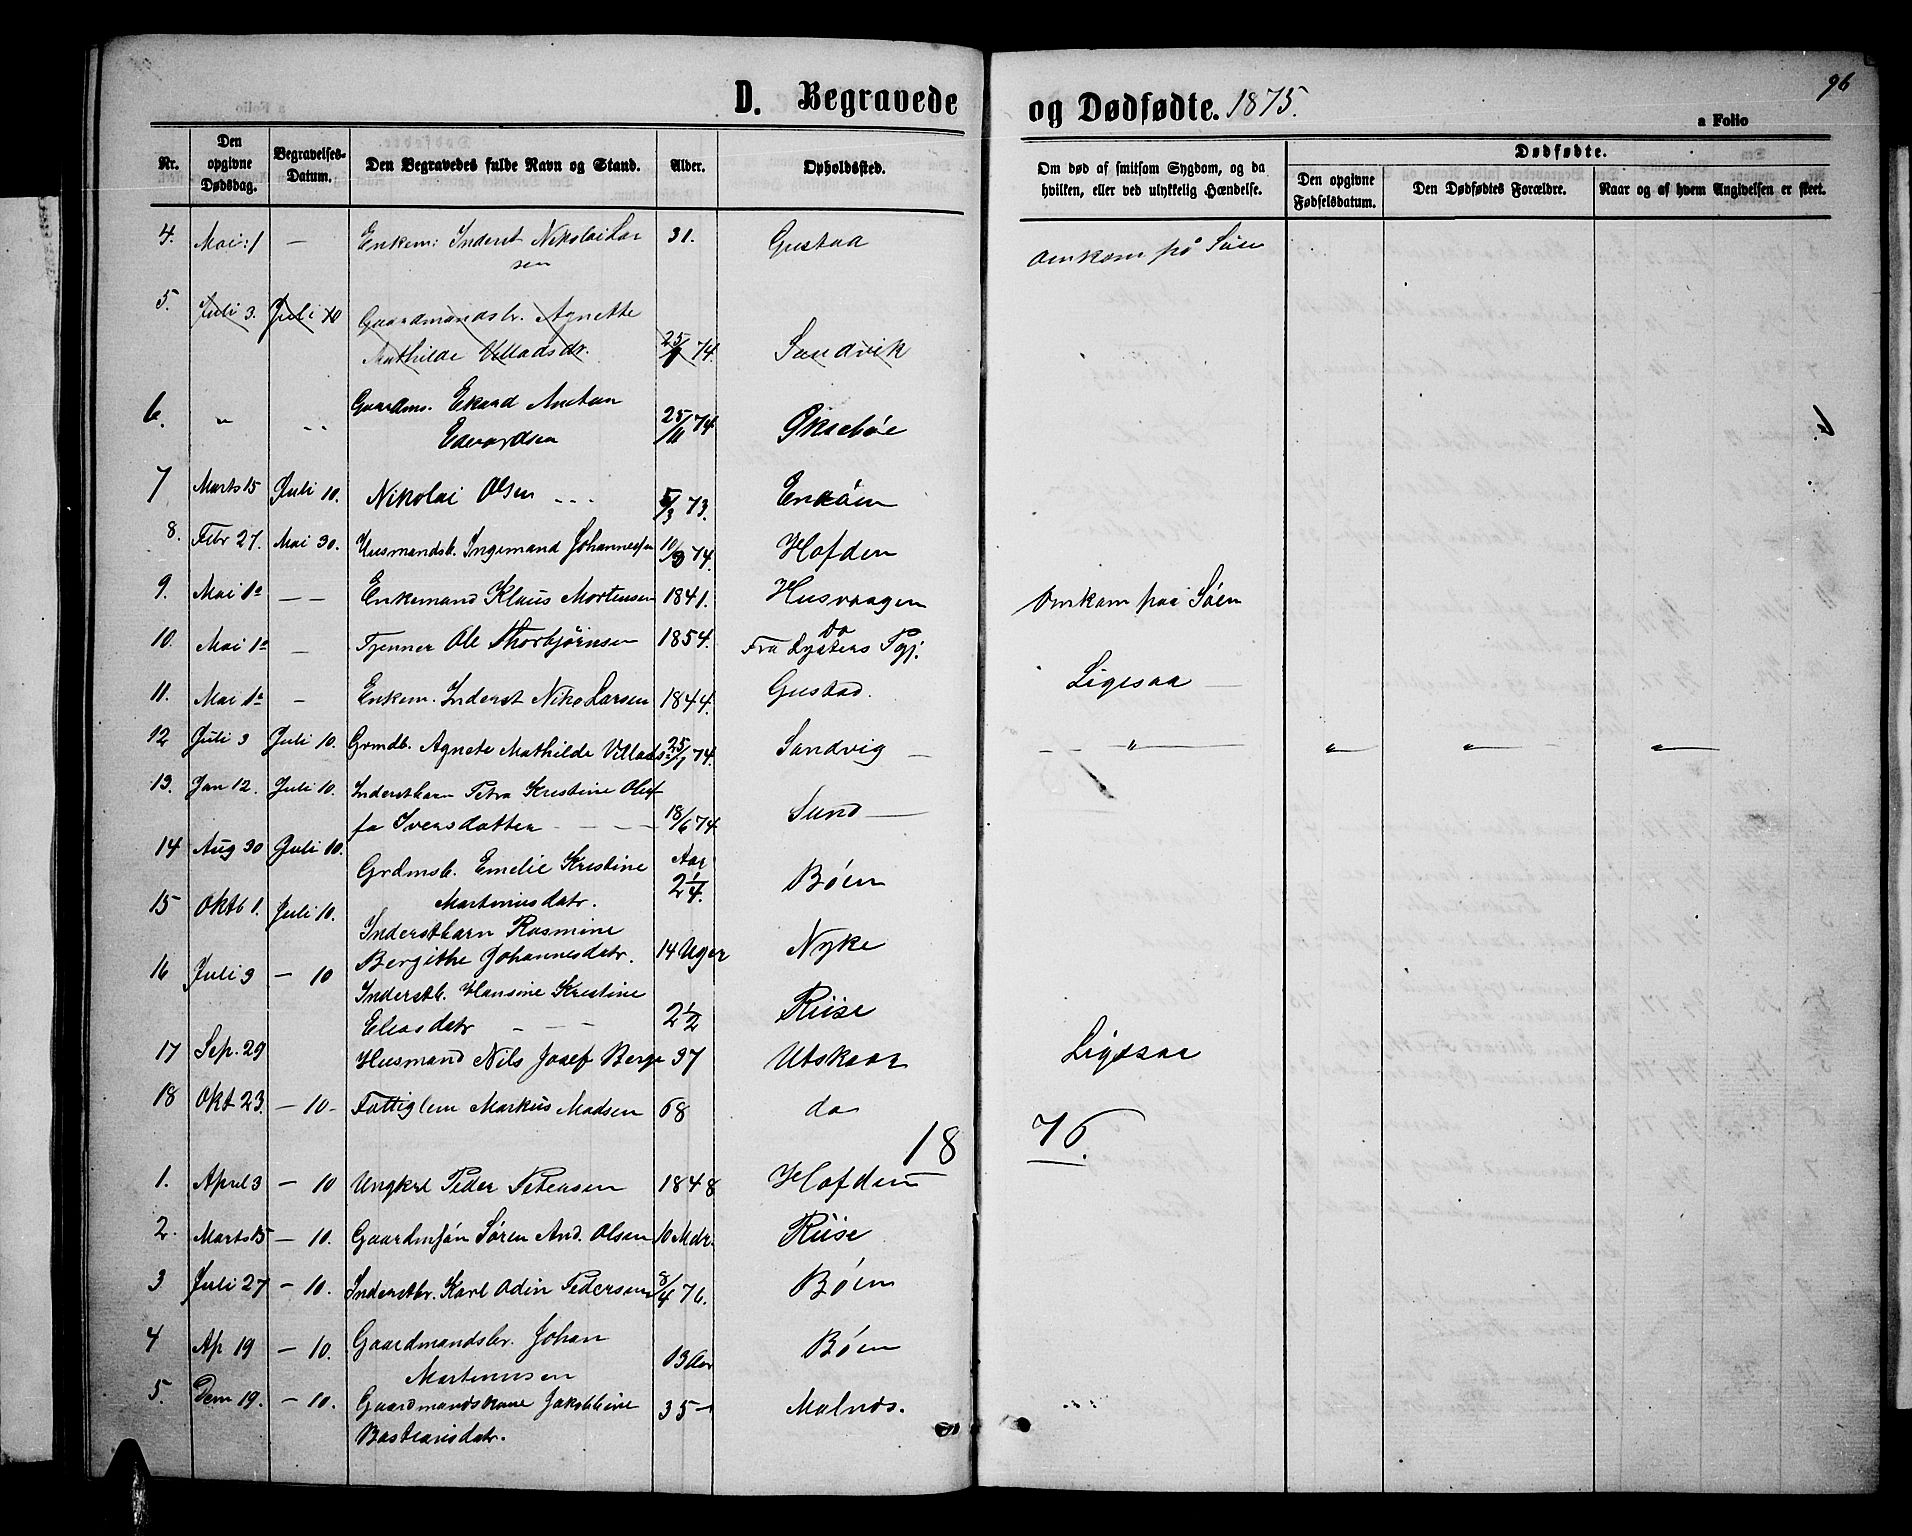 96
D. Begravede og Dødfødte. 1875.
a Folio
Nr. Den opgivne Dødsdag. Begravelses-Datum. Den Begravedes fulde Navn og Stand. Alder. Opholdssted. Om død af smitsom Sygdom, og da hvilken, eller ved ulykkelig Hændelse. Dødfødte. Den opgivne Fødselsdatum. Den Dødfødtes Forældre. Naar og af hvem Angivelsen er skeet.
4. Mai 1 — Enkem: Inderst Nikolai Lar 31. Gustad omkom på Søen
sen
5. Juli 3. Juli 10 Gaardmandsbr. Agnette
Mathilde Villadsdr. 25/1 74. Sandvik
6. " " Gaardms. Ekard Anton 25/11 74 Oksebøe 6.
Edvardsen
7 Marts 15 Juli 10. Nikolai Olsen - - - 5/3 73. Endøen
8. Febr 27. Mai 30. Husmandsb. Ingemand Johannessen 10/3 74. Hofden
9. Mai 1ª — — Enkemand Klaus Mortensen 1841. Husvaagen Omkom paa Søen
10. Mai 1ª — Tjenner Ole Thorbjørnsen 1854. do
Fra Lysters Pgj. Ligesaa —
11. Mai 1ª — Enkem. Inderst Niko Larsen 1844. Gustad.
12 Juli 3 Juli 10. Grmdb. Agnete Mathilde Villads 25/1 74. Sandvig — — " — " — " — " —
13. Jan 12. Juli 10. Inderstbarn Petra Kristine Oluf
fa Iversdatter — — — 18/6 74 Sund —
14 Aug 30 Juli 10. Grdmsb. Emelie Kristine Aar
Martinusdatr. 2 1/4. Bøen
15 Oktb 1. Juli 10. Inderstbarn Rasmine
Bergithe Johannesdatr. 14 Uger Nyke
16 Juli 3 — 10 Inderstb. Hansine Kristine
Eliasdatr — — — 2 1/2 Riise
17 Sep. 29 Husmand Nils Josef Berge 37 Utskaar Ligesaa
18 Okt 23. — 10 - Fattiglem Markus Madsen 68 do
18 76.
1. April 3 — 10 Ungkrl Peder Petersen 1848 Hofden
2. Marts 15 — 10. Gaardmsøn Søren And. Olsen 10 Mdr. Riise
3 Juli 27 — 10. Inderstbr. Karl Odin Pedersen 8/4 76. Bøen
4 Ap 19 — 10. Gaardmandsbr. Johan
Martinusen 13 Aar Bøen
5. Dem 19. — 10. Gaardmandskone Jakobbine 35 — Malnes.
Bastiansdatr.